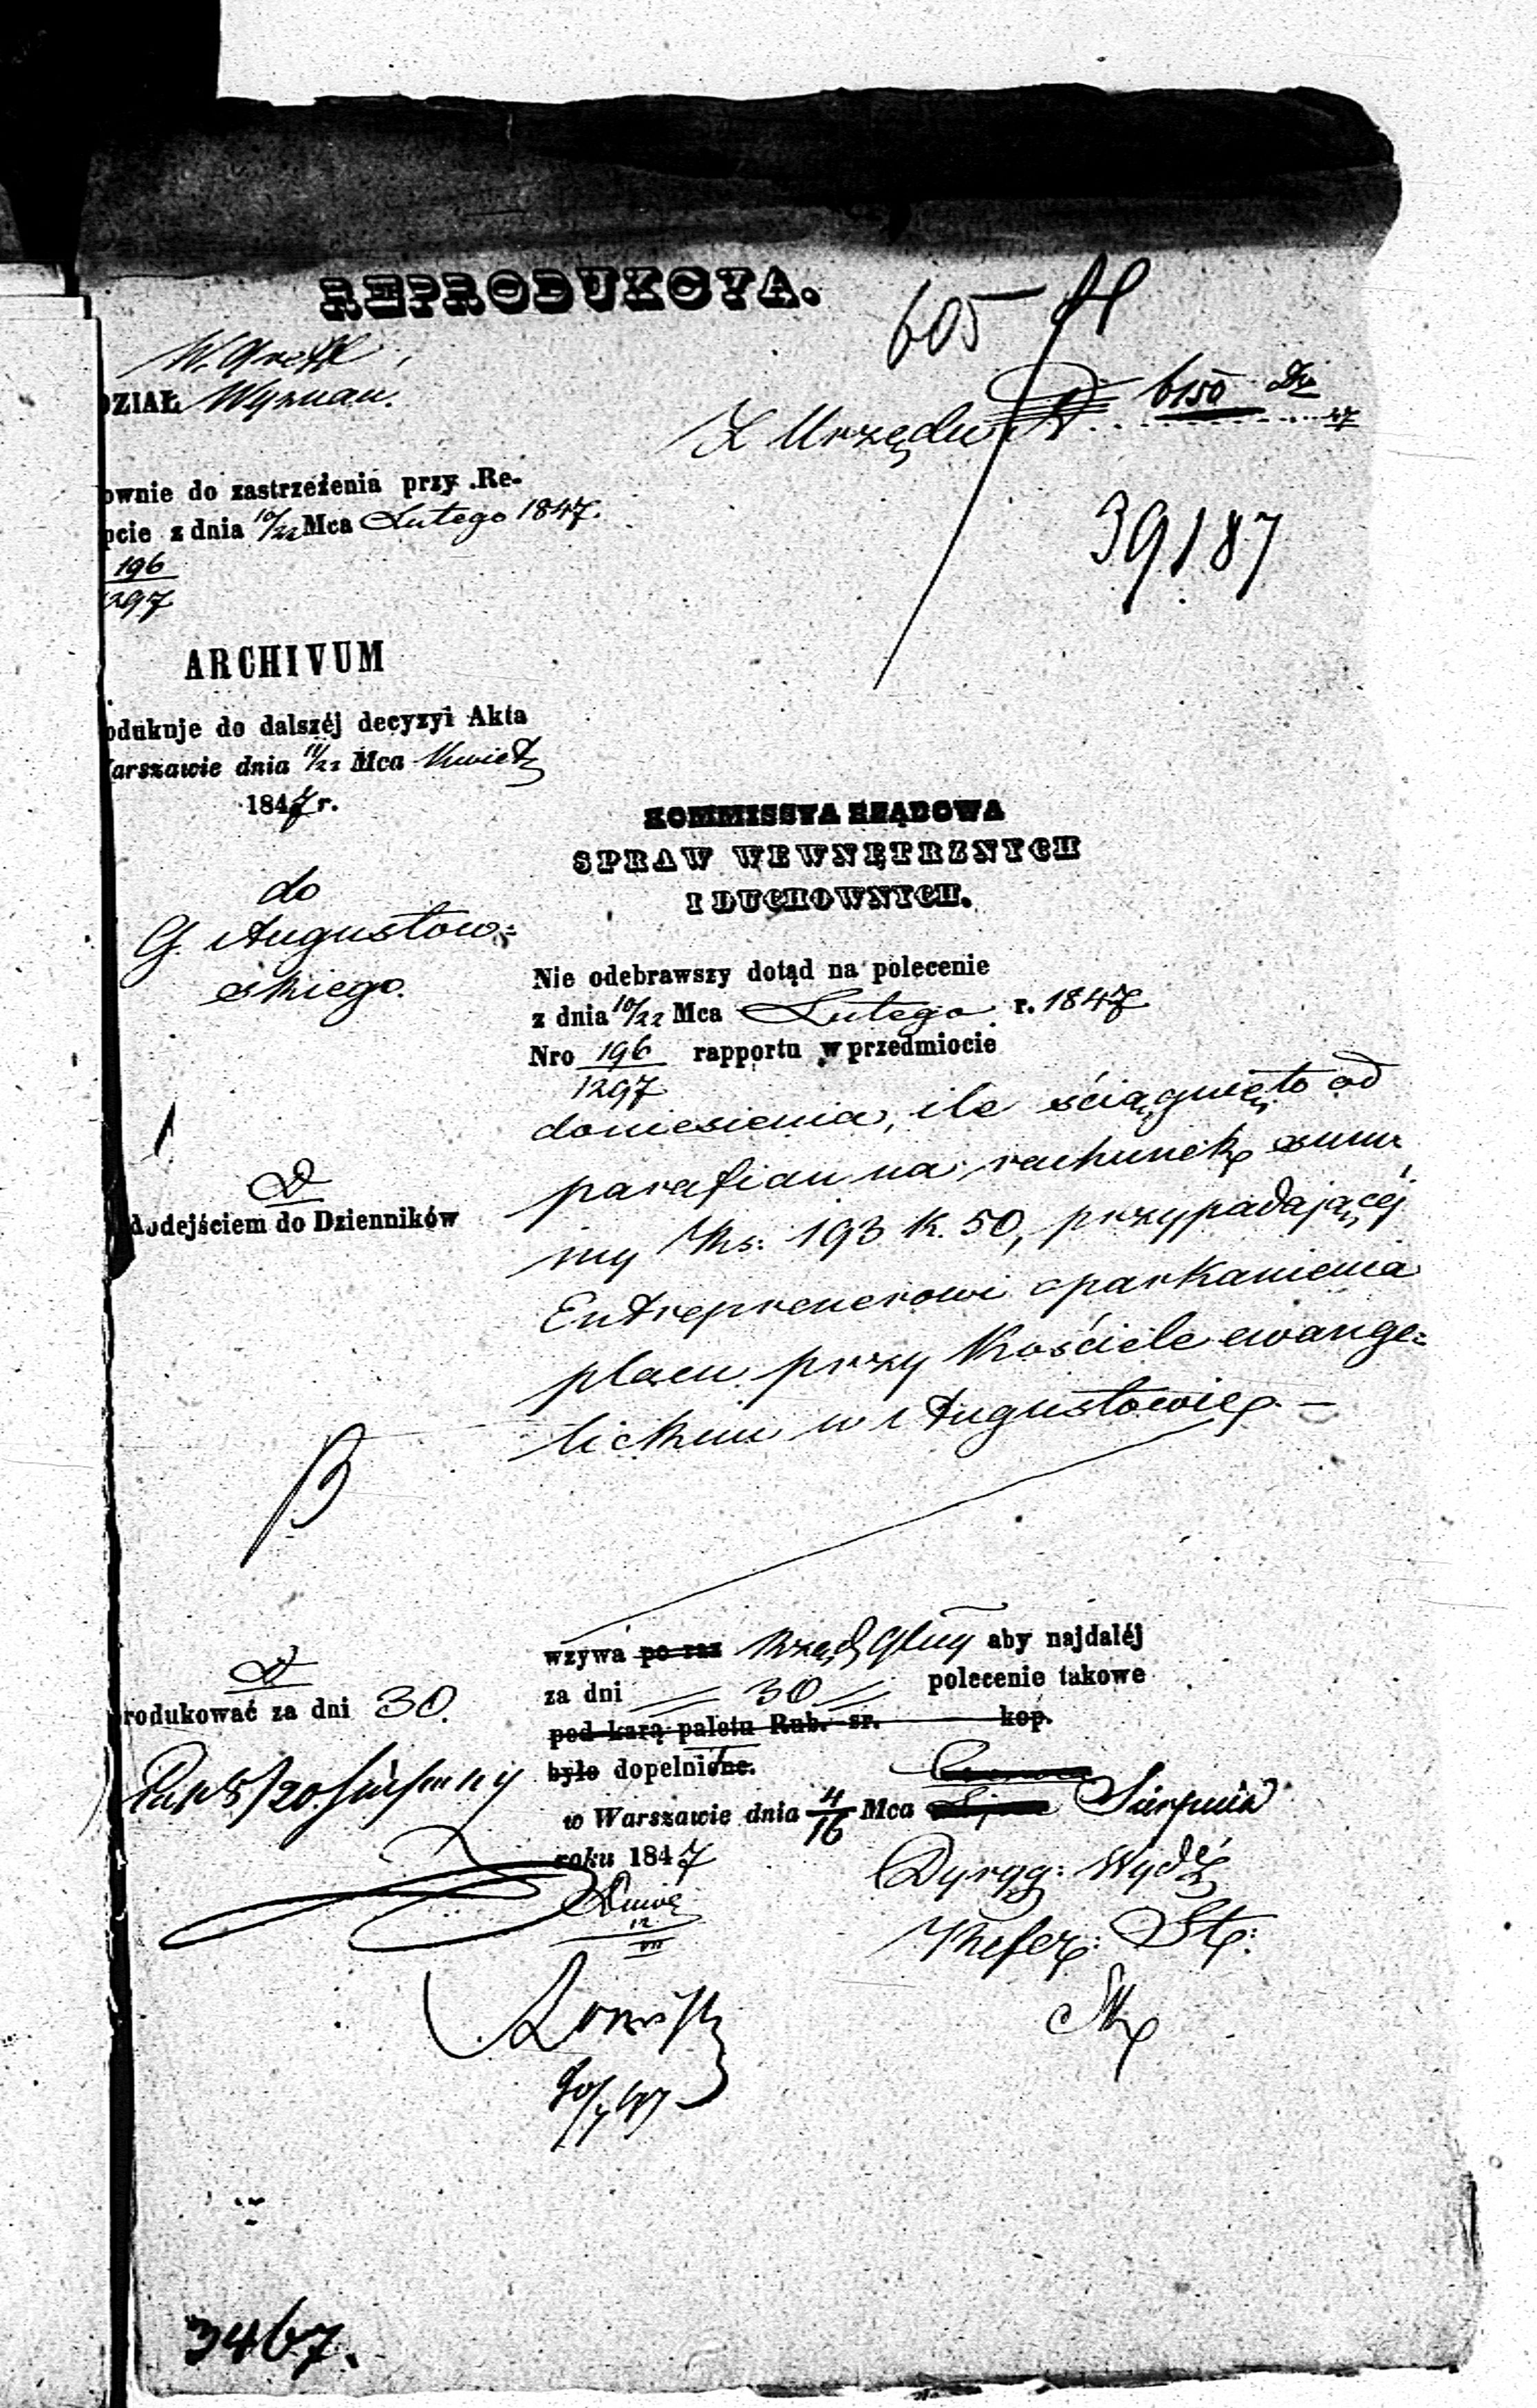 REPRODUKCYA.
605
DZIAŁ Wyznań.
Z Urzędu 6150
47
39187
ownie do zastrzeżenia przy Re-
pcie z dnia 10/22 Mca Lutego 1847.
196
1297
ARCHIVUM
odukuje do dalszéj decyzyi Akta
arszawie dnia 11/23 Mca Kwiet
1847 r.
do
G. Augustow=
skiego.
KOMMISSYA RZĄDOWA
SPRAW WEWNĘTRZNYCH
I DUCHOWNYCH.
Nie odebrawszy dotąd na polecenie
z dnia 10/22 Mca Lutego r. 1847
Nro 196 rapportu w przedmiocie
1297
doniesienia, ile ściągnięto od
parafian na rachunek sum
my Rs: 193 k. 50, przypadającéj
Entreprenerowi oparkanienia
placu przy Kościele ewange=
lickim w Augustowie. —
dodejściem do Dzienników
wzywa po raz Rząd Glny aby najdaléj
za dni 30 polecenie takowe
pod karą paletu Rub. sr. kop.
było dopelnione.
rodukować za dni 30.
w Warszawie dnia 4/16 Mca Sierpnia
roku 1847
Dyryg: Wydź
12
VII
Refer: St:
3467.